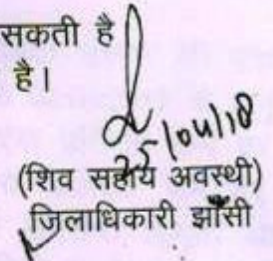 सकती है
है।
25/04/18
(शिव सहाय अवस्थी)
जिलाधिकारी झाँसी